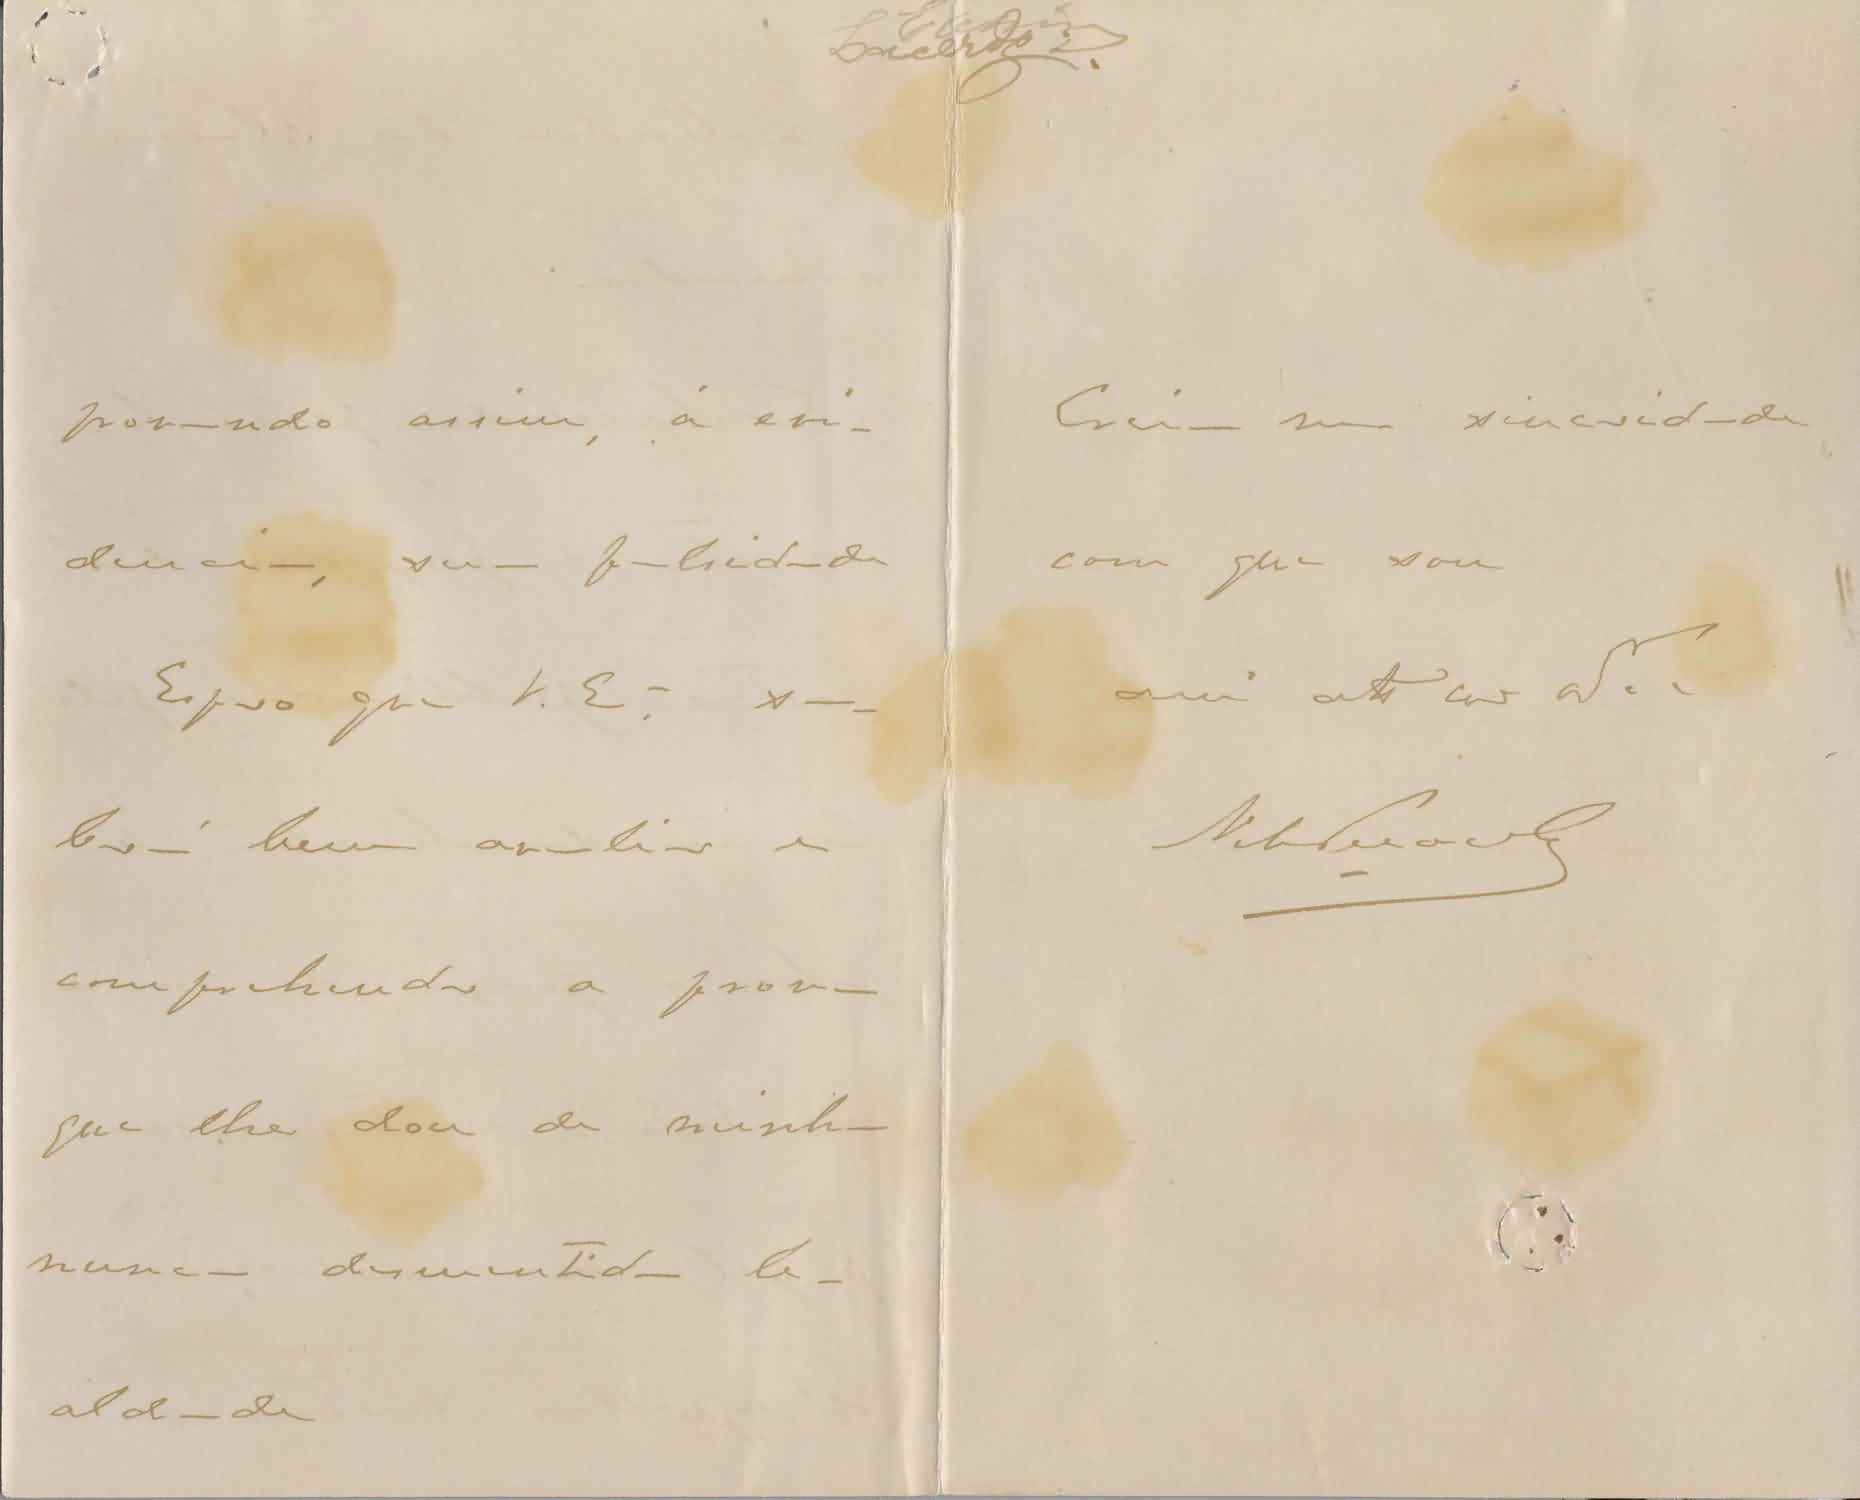 provando assim, á evi-
dencia, sua falsidade
Espero que V. Exª sa-
berá bem avaliar e
comprehender a prova
que lhe dou de minha
nunca desmentida le-
aldade
Creia na sinceridade
com que sou